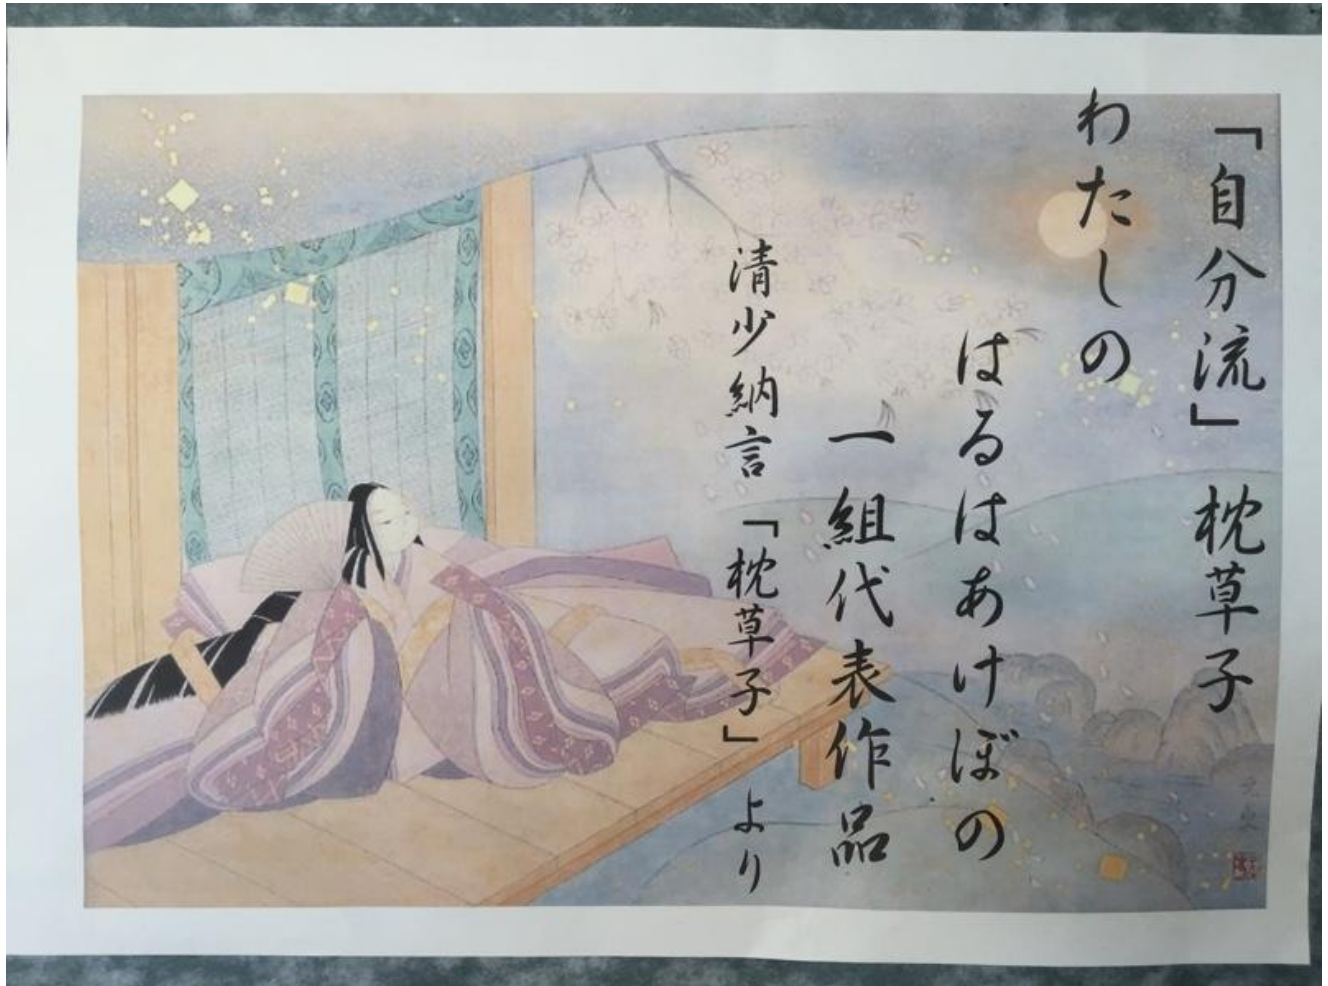 「自分流」枕草子
わたしの
はるはあけぼの
一組代表作品
清少納言「枕草子」より